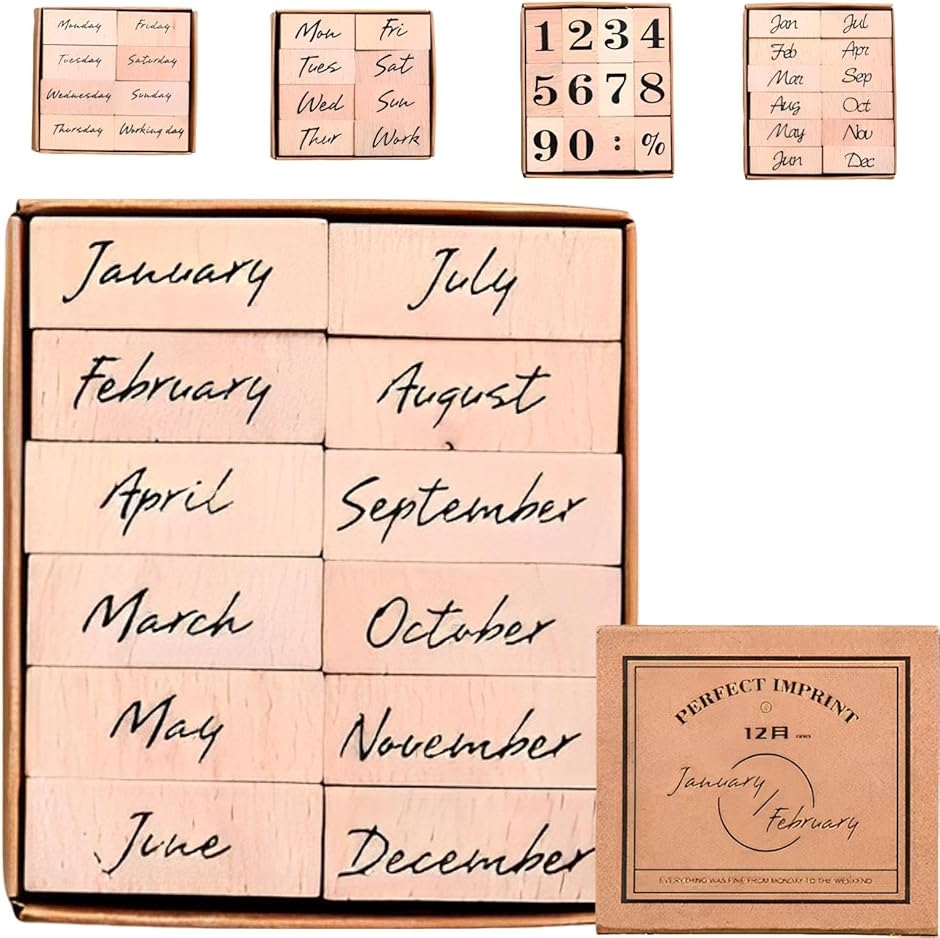 Monday Friday
Tuesday Saturday
Wednesday Sunday
Thursday Working day
Mon Fri
Tues Sat
Wed Sun
Thur Work
1 2 3 4
5 6 7 8
9 0 : %
Jan Jul
Feb Apr
Mar Sep
Aug Oct
May Nov
Jun Dec
January July
February August
April September
March October
May November
June December
PERFECT IMPRINT
12月
January
/
February
EVERYTHING WAS FINE FROM MONDAY TO THE WEEKEND